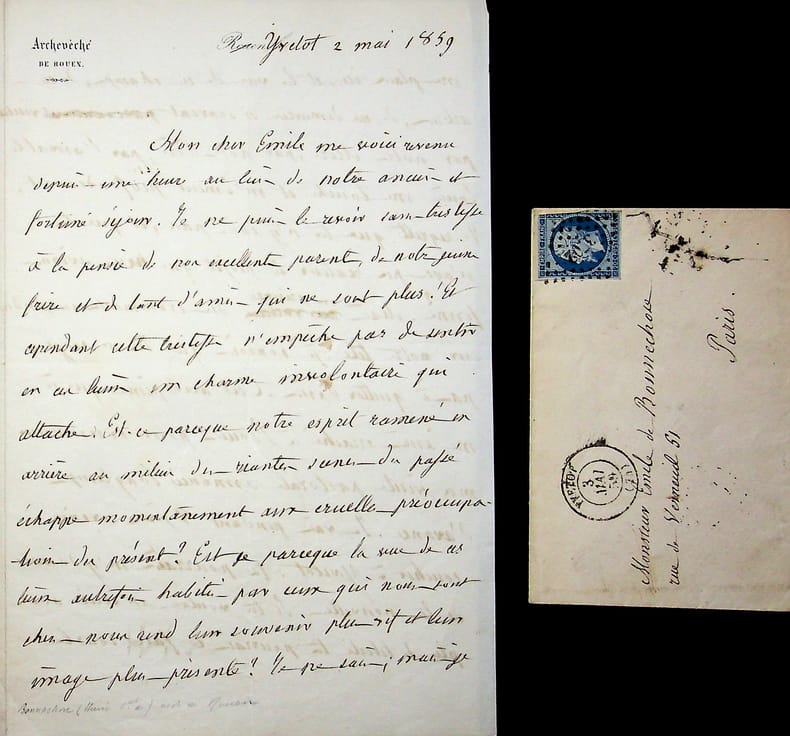 Archevêché
DE ROUEN.
Rouen Yvetot 2 mai 1859
Mon cher Emile me voici revenu
depuis une heure au lieu de notre ancien et
fortuné séjour. Je ne puis le revoir sans tristesse
à la pensée de nos excellents parents, de notre jeune
frère et de tant d'amis qui ne sont plus! Et
cependant cette tristesse n'empêche pas de sentir
en ces lieux un charme involontaire qui
attache. Est-ce parceque notre esprit ramené en
arrière au milieu des riantes scènes du passé
échappe momentanément aux cruelles préoccupa-
tions du présent? Est-ce parceque la vue de ces
lieux autrefois habités par ceux qui nous sont
chers nous rend leur souvenir plus vif et leur
image plus présente? Je ne sais; mais je
Bonnechose
Rouen
YVETOT
3
MAI
59
Monsieur Emile de Bonnechose
rue de Verneuil 51
Paris.